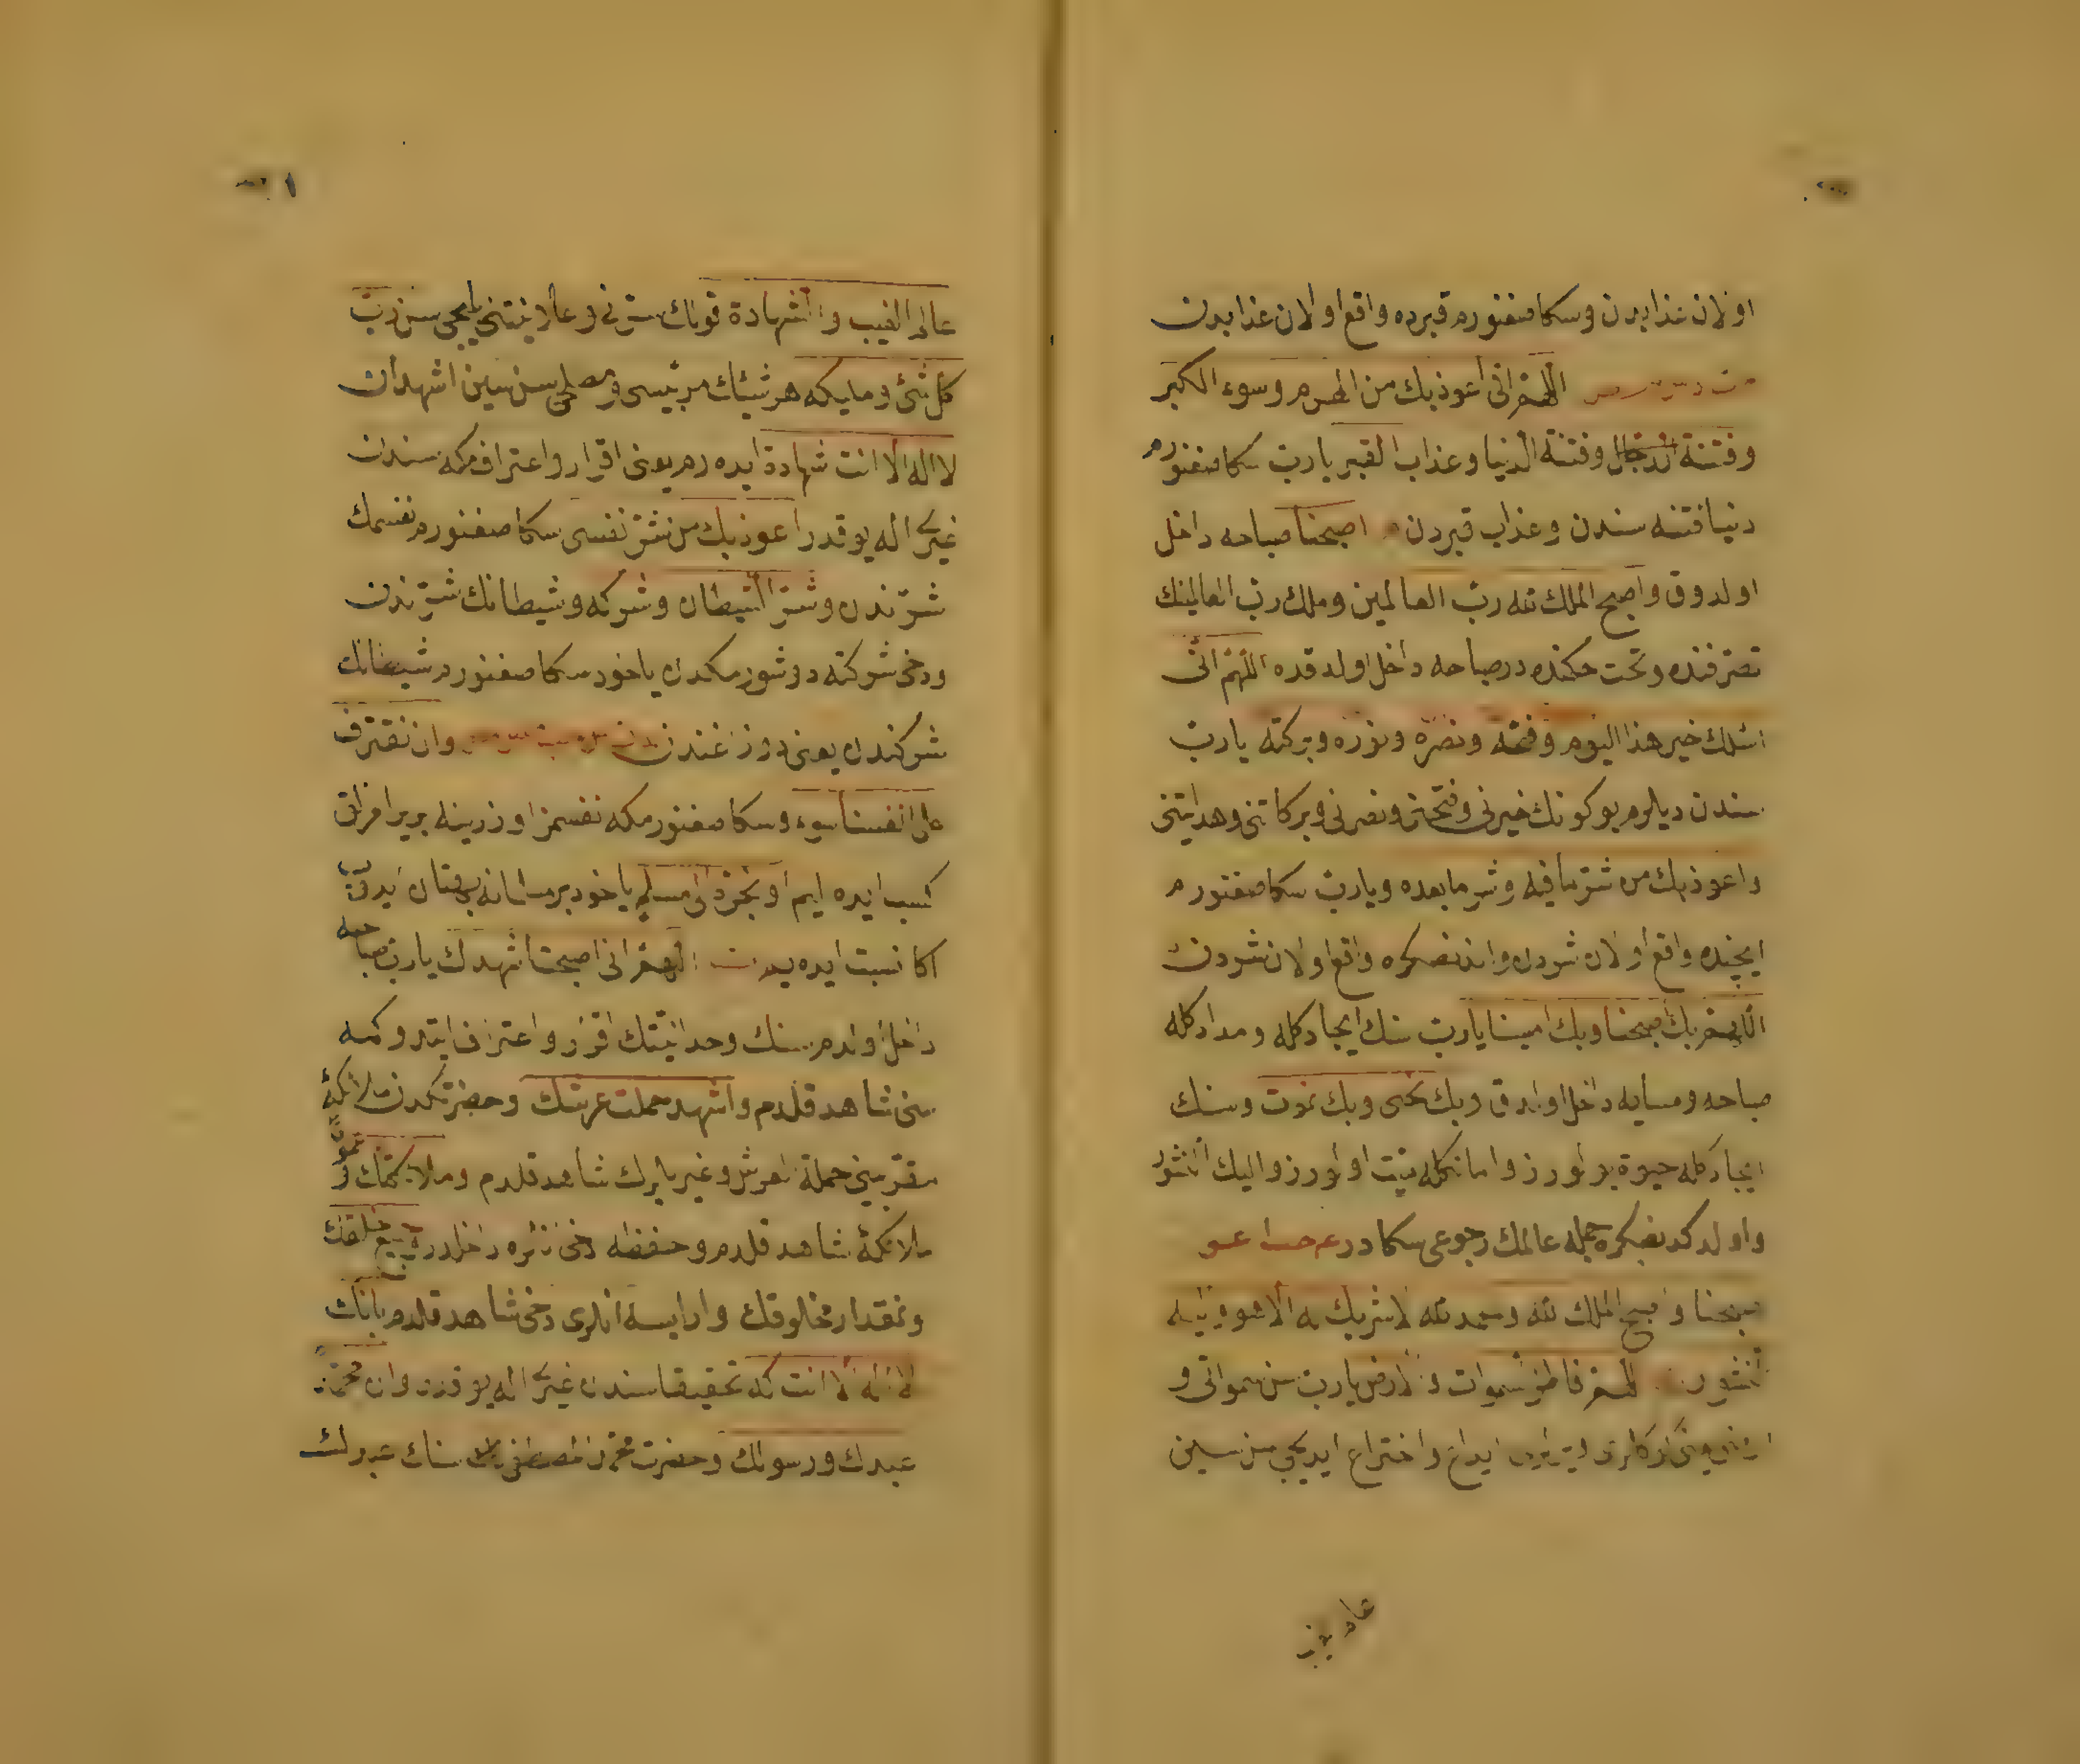 اولان عذابدن و سكا صغنورم قبرده واقع اولان عذابدن
اللهم انى اعوذ بك من الهرم وسوء الكبر
وفتنة الدجال وفتنة الدنيا وعذاب القبر يا رب سكا صغنورم
دنيا فتنه سندن وعذاب قبردن اصبحنا صباحه داخل
اولدوق واصبح الملك لله رب العالمين وملك رب العالمينك
تصرفنده وتحت حكمنده در صباحه داخل اولدقده اللهم انى
اسئلك خير هذا اليوم وفتحه ونصره ونوره وبركته يا رب
سندن ديلرم بو كونك خيرنى وفتحنى ونصرنى وبركاتنى وهدايتنى
واعوذ بك من شر ما فيه وشر ما بعده ويا رب سكا صغنورم
ايچنده واقع اولان شردن واندنصكره واقع اولان شردن
اللهم بك اصبحنا وبك امسينا يا رب سنك ايجادكله ومدادكله
صباحه ومسايه داخل اولدق وبك نحيى وبك نموت وسنك
ايجادكله حيوة بولورز واماتكله ميت اولورز واليك النشور
واولدكدنصكره جمله عالمك رجوعى سكادر
اصبحنا واصبح الملك لله والحمد لله لا شريك له الا هو واليه
النشور اللهم فاطر السموات والارض يا رب سن سمواتى و
ايداع واختراع ايديجى سن سين
عالم الغيب
عالم الغيب والشهادة قونك سرنى وعلانيتنى بليجى سن رب
كل شئ ومليكه هر شيئك مربيسى ومصلحى سن سين اشهد ان
لا اله الا انت شهادة ايده رم يعنى اقرار واعتراف كه سندن
غيرى اله يوقدر اعوذ بك من شر نفسى سكا صغنورم نفسمك
شرندن وشر الشيطان وشركه وشيطانك شرندن
ودخى شركته دوشورمكدن ياخود سكا صغنورم شيطانك
شركندن يعنى دوزغندن وان نقترف
على انفسنا سوء وسكا صغنورمكه نفسمز اوزرينه بر يرامزلق
كسب ايده ايم او نجره الى مسلم ياخود بر مسلمانه بهتان ايدوب
اكا نسبت ايده يم اللهم انى اصبحت اشهدك يا رب صباحه
داخل اولدم سنك وحدانيتك اقرار واعتراف ايتدوكمه
سنى شاهد قلدم واشهد حملت عرشك وحضرتكدن ملائكۀ
مقربينى حملۀ العرش وغيريلرك شاهد قلدم وملائكتك وعموم
ملائكۀ شاهد قلدم وحفظه دخى بونلره داخلدر وجميع خلقك
ونمقدار مخلوقك وارايسه انلرى دخى شاهد قلدم بانك
لا اله الا انت كه تحقيقا سندن غيرى اله يوقدر وان محمدا
عبدك ورسولك وحضرت محمدن المصطفى سنك عبدك